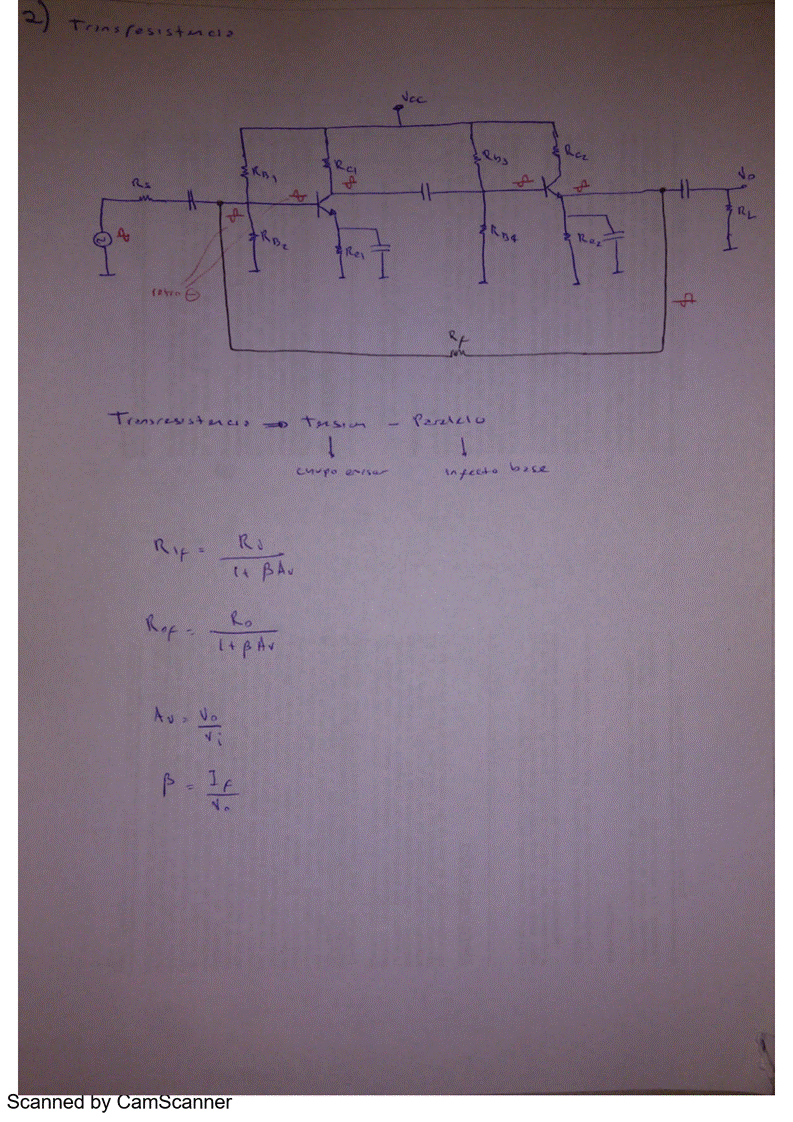 2) Transresistencia
Vcc
RB1
RC1
RB3
RC2
Rs
Vo
RL
RB2
Re1
RB4
Re2
retro ⊖
Rf
Transresistencia ⇒ Tension - Paralelo
↓ ↓
cuerpo emisor infecto base
Rif = Ri / 1 + βAv
Rof = Ro / 1 + βAv
Av = Vo / Vi
β = If / Vo
Scanned by CamScanner